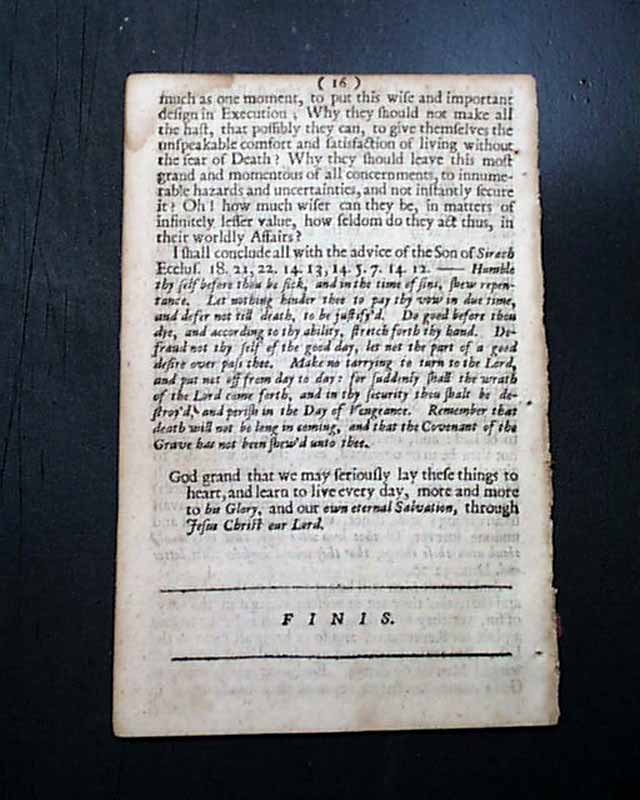 ( 16 )
much as one moment, to put this wiſe and important
deſign in Execution; Why they ſhould not make all
the haſt, that poſſibly they can, to give themſelves the
unſpeakable comfort and ſatisfaction of living without
the fear of Death? Why they ſhould leave this moſt
grand and momentous of all concernments, to innume-
rable hazards and uncertainties, and not inſtantly ſecure
it? Oh! how much wiſer can they be, in matters of
infinitely leſſer value, how ſeldom do they act thus, in
their worldly Affairs?
I ſhall conclude all with the advice of the Son of Sirach
Eccluſ. 18. 21, 22. 14. 13, 14. 5. 7. 14. 12. — Humble
thy ſelf before thou be ſick, and in the time of ſins, ſhew repen-
tance. Let nothing hinder thee to pay thy vow in due time,
and defer not till death, to be juſtify'd. Do good before thou
dye, and according to thy ability, ſtretch forth thy hand. De-
fraud not thy ſelf of the good day, let not the part of a good
deſire over paſs thee. Make no tarrying to turn to the Lord,
and put not off from day to day: for ſuddenly ſhall the wrath
of the Lord come forth, and in thy ſecurity thou ſhalt be de-
ſtroy'd, and periſh in the Day of Vengeance. Remember that
death will not be long in coming, and that the Covenant of the
Grave has not been ſhew'd unto thee.
God grand that we may ſeriouſly lay theſe things to
heart, and learn to live every day, more and more
to his Glory, and our own eternal Salvation, through
Jeſus Chriſt our Lord.
FINIS.